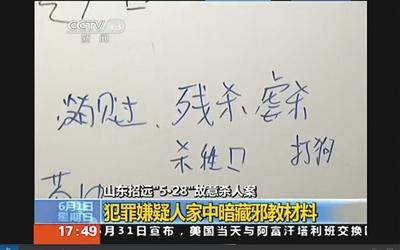 新闻
见过 残杀 虐杀
打狗
山东招远“5·28”故意杀人案
6月1日
星期日
犯罪嫌疑人家中暗藏邪教材料
17:49 月31日宣布，美国当天与阿富汗塔利班交换